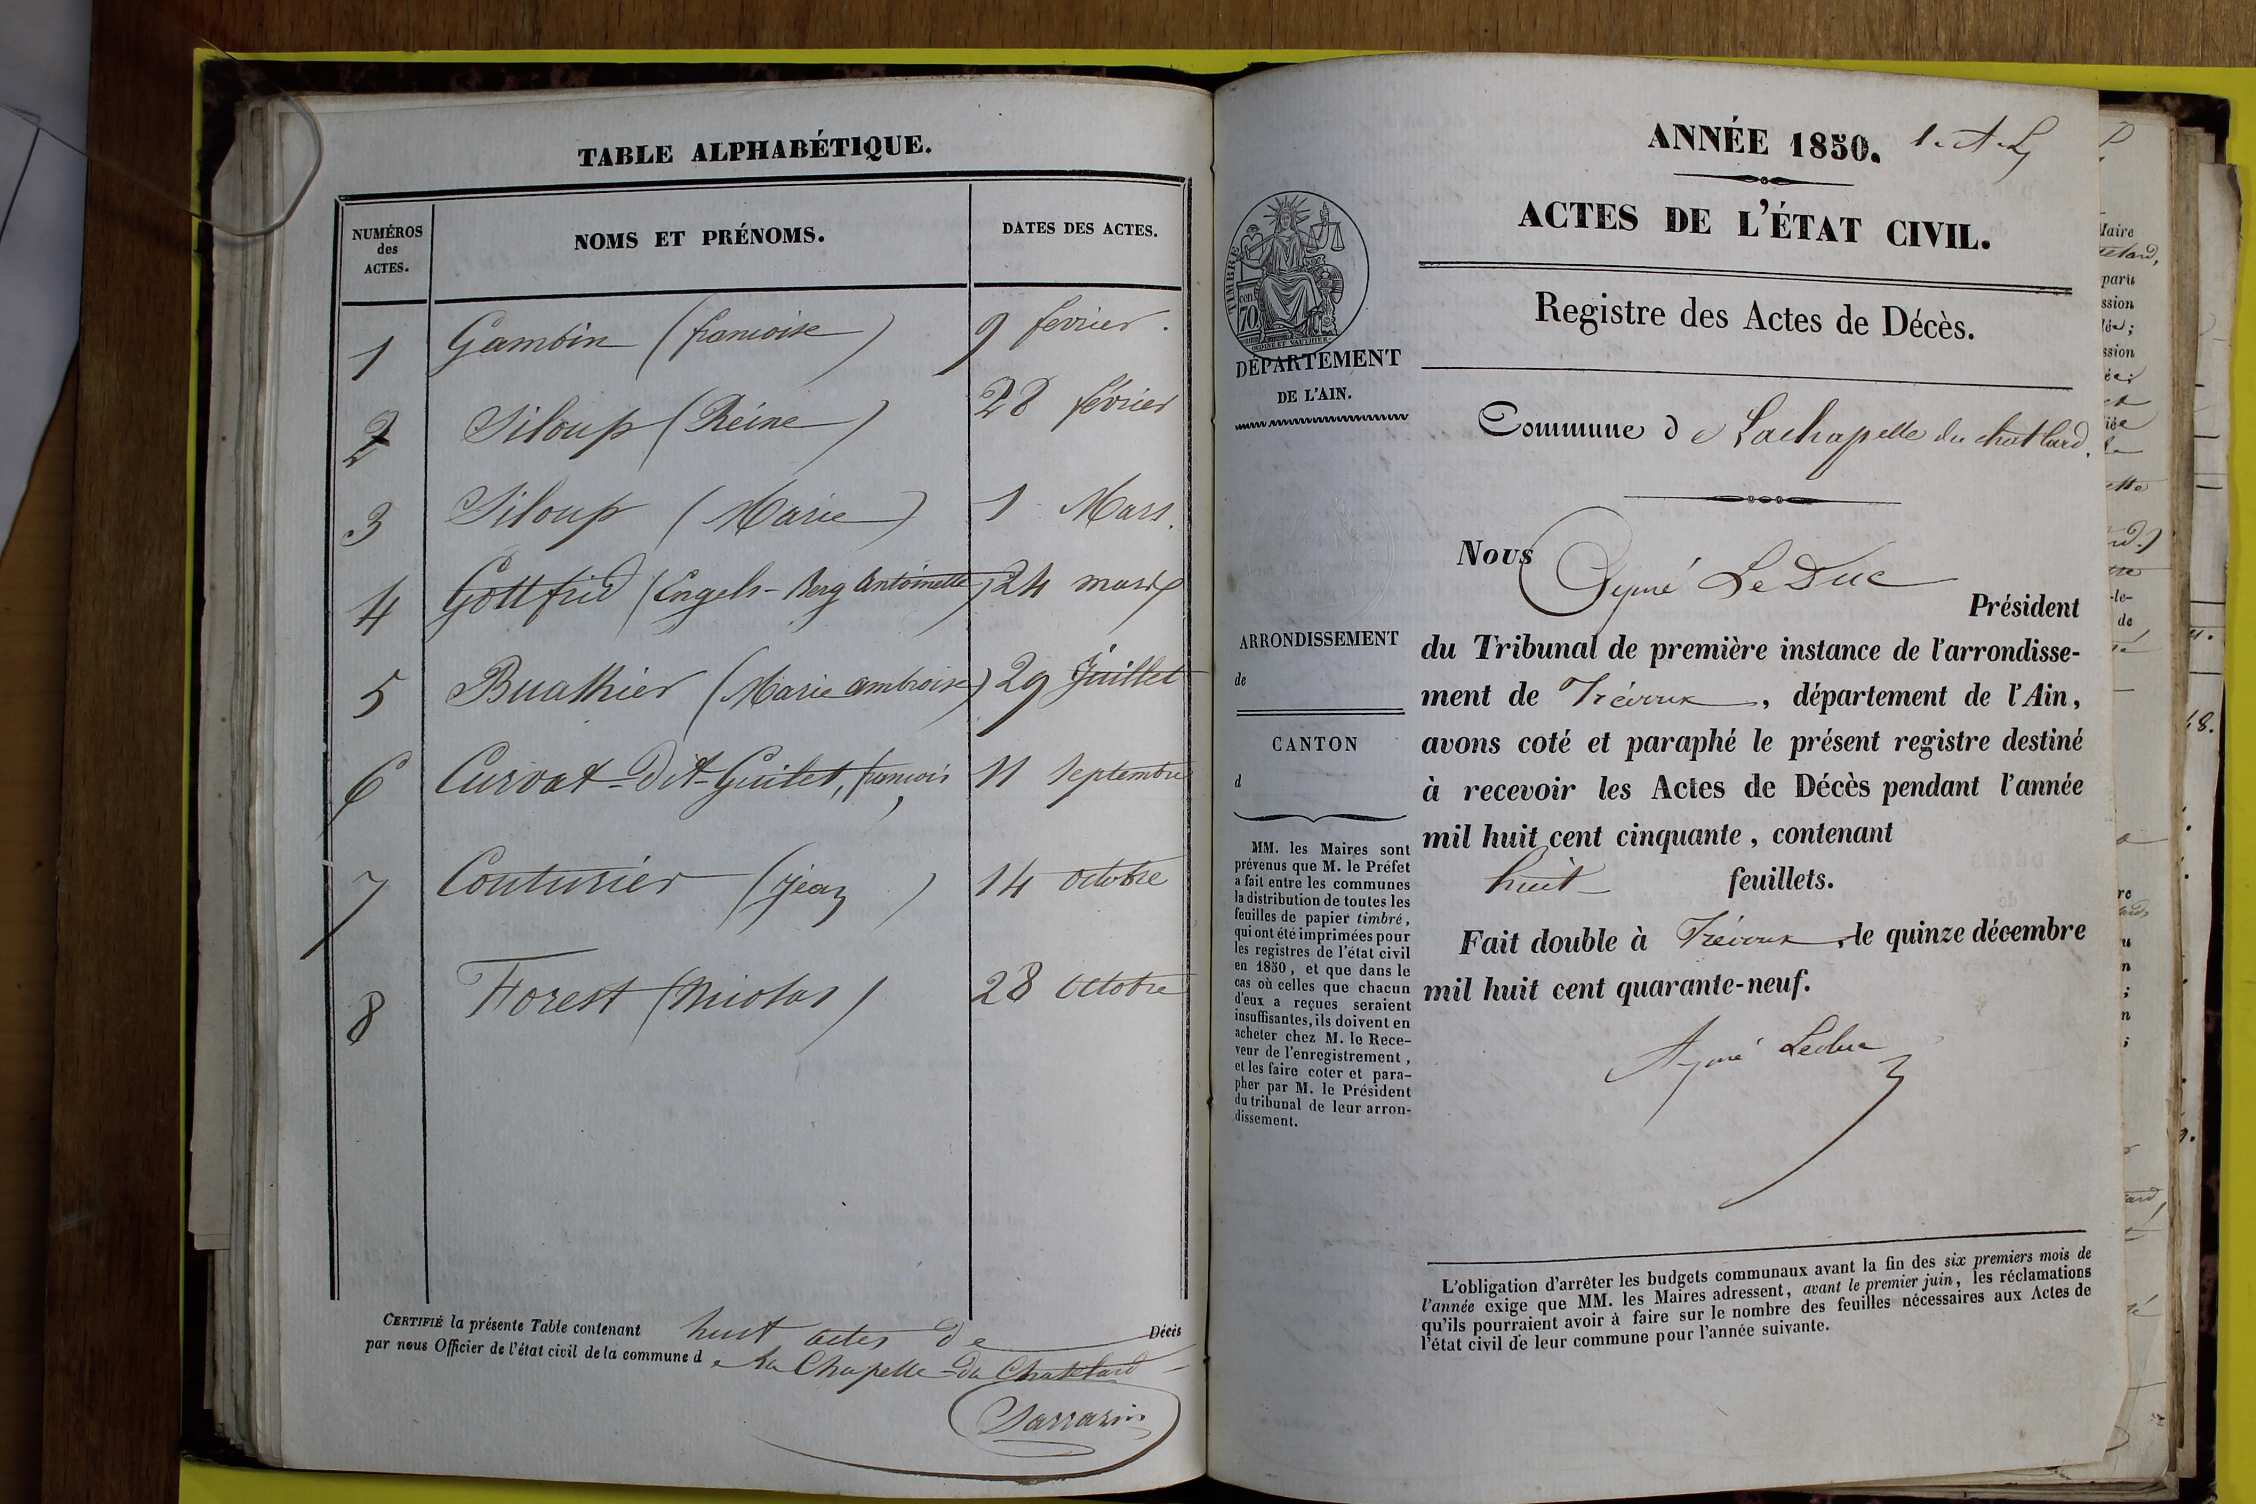 TABLE ALPHABÉTIQUE.
NUMÉROS des ACTES. NOMS ET PRÉNOMS. DATES DES ACTES.
1 Gambin (francoise) 9 fevrier.
2 Siloup (Réine) 28 février
3 Siloup (Marie) 1 Mars.
4 Gottfrid (Engels-Berg Antoinette) 24 mars
5 Buathier (Marie ambroise) 29 Juillet
6 Curvat-Dit-Guilet, francois 11 Septembre
7 Couturier (jean) 14 octobre
8 Forest (Nicolas) 28 octobre
CERTIFIÉ la présente Table contenant huit actes de Décès
par nous Officier de l'état civil de la commune d e La Chapelle-du Chatelard
Sarrazin
ANNÉE 1850.
ACTES DE L'ÉTAT CIVIL.
Registre des Actes de Décès.
TIMBRE
70 cen.
DÉPARTEMENT
DE L'AIN.
Commune d e Lachapelle du chatelard.
ARRONDISSEMENT
de
CANTON
d
MM. les Maires sont
prévenus que M. le Préfet
a fait entre les communes
la distribution de toutes les
feuilles de papier timbré,
qui ont été imprimées pour
les registres de l'état civil
en 1850, et que dans le
cas où celles que chacun
d'eux a reçues seraient
insuffisantes, ils doivent en
acheter chez M. le Rece-
veur de l'enregistrement,
et les faire coter et para-
pher par M. le Président
du tribunal de leur arron-
dissement.
Nous Aymé Le Duc
Président
du Tribunal de première instance de l'arrondisse-
ment de Trévoux, département de l'Ain,
avons coté et paraphé le présent registre destiné
à recevoir les Actes de Décès pendant l'année
mil huit cent cinquante, contenant
huit feuillets.
Fait double à Trévoux, le quinze décembre
mil huit cent quarante-neuf.
Aymé Leduc
L'obligation d'arrêter les budgets communaux avant la fin des six premiers mois de
l'année exige que MM. les Maires adressent, avant le premier juin, les réclamations
qu'ils pourraient avoir à faire sur le nombre des feuilles nécessaires aux Actes de
l'état civil de leur commune pour l'année suivante.